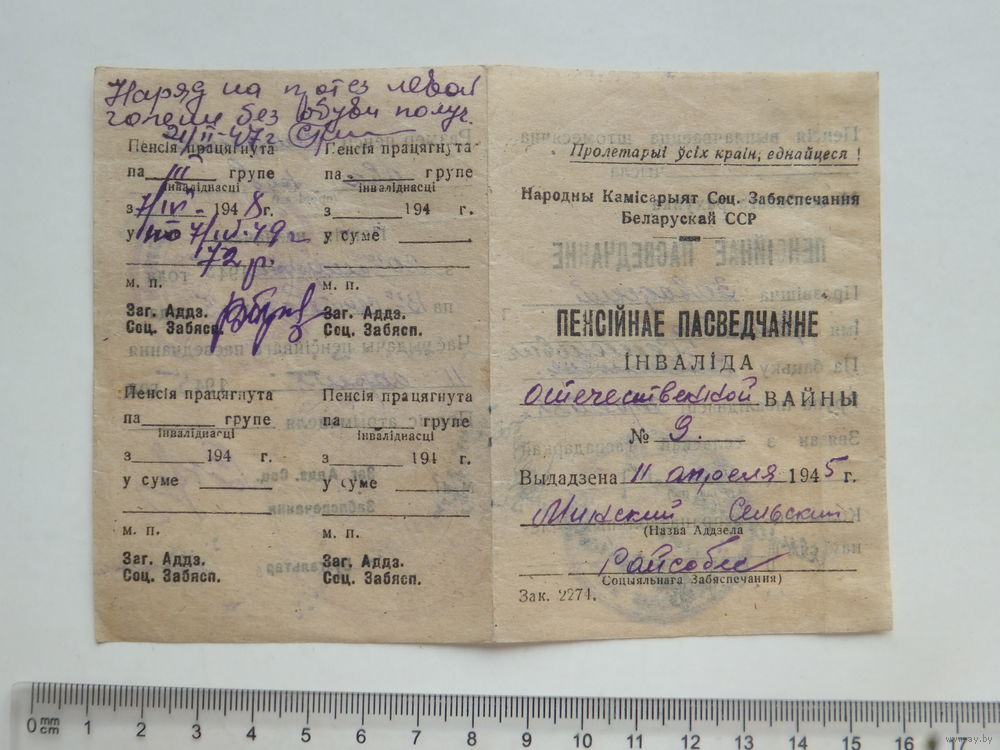 Наряд на протез левой
голени без обуви получ.
21/II-47 г.
Пенсія працягнута
па III групе
інваліднасці
з 7/IV- 1948 г.
у по 7/IV-49 г.
72 р.
м. п.
Заг. Аддз.
Соц. Забясп.
Пенсія працягнута
па групе
інваліднасці
з 194 г.
у суме
м. п.
Заг. Аддз.
Соц. Забясп.
Пенсія працягнута
па групе
інваліднасці
з 194 г.
у суме
м. п.
Заг. Аддз.
Соц. Забясп.
Пенсія працягнута
па групе
інваліднасці
з 194 г.
у суме
м. п.
Заг. Аддз.
Соц. Забясп.
Пролетарыі ўсіх краін, еднайцеся!
Народны Камісарыят Соц. Забяспечання
Беларускай ССР
ПЕНСІЙНАЕ ПАСВЕДЧАННЕ
ІНВАЛІДА
отечественной ВАЙНЫ
№ 9.
Выдадзена 11 апреля 1945 г.
Минский Сельский
(Назва Аддзела
Райсобес
Соцыяльнага Забяспечання)
Зак. 2274.
0 mm cm 1 2 3 4 5 6 7 8 9 10 11 12 13 14 15 16